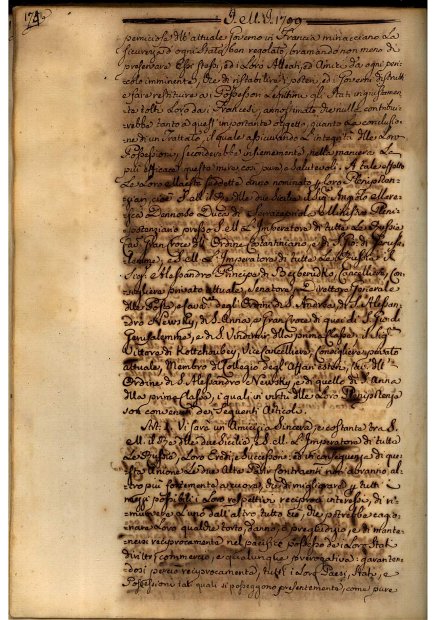 174.
1799
perniciose dell'attuale Governo in Francia minacciano La
sicurezza ad ogni Stato ben regolato, bramando non meno di
preservare Essi stessi, ed i Loro Alleati, ed Amici da ogni peri-
colo imminente, che di ristabilire i poteri, ed Governi distrutti
e fare restituire a' Possessori Legitimi gli Stati ingiustamen-
te tolti Loro dai Francesi, annosimato che nulla contribui-
rebbe tanto a quest'importante oggetto, quanto La conclusio-
ne di un Trattato, il quale assicurando L'integrità delle Loro
Possessioni, seconderebbe insiememente nella maniera La
più efficace queste mire così pure, e salutevoli. A tale effetto
Le Loro Maestà suddette anno nominato i Loro Plenipoten-
ziarj, cioè S. M. il Re delle due Sicilie il Sig.
Duca di Serracapriola, Ministro Pleni-
potenziario presso S. M. L'Imperatore di tutte Le Russie
Gran Croce dell'Ordine Costantiniano, e di S. Gio: di Gerusa-
lemme, e S. M. L'Imperatore di tutte Le Russie Li
Sigri Alessandro Principe di Cancelliere, Con-
sigliere privato attuale, Senatore, Direttore Generale
delle Poste, e Cav. degli Ordini di S. Andrea, di S. Alessan-
dro Newsky, di S. Anna, e Gran Croce di quei di S. Gio: di
Gerusalemme, e S. Vladimir della prima Classe, e il Sig.
Vittore di Kottchoubey, Vice Cancelliere, Consigliere privato
attuale, Membro del Collegio degli Affari esteri, Cav. dell'
Ordine di S. Alessandro Newsky, e di quello di S. Anna
della prima Classe, i quali in virtù delle Loro Plenipotenze
son convenuti dei Seguenti Articoli.
Art. I. Vi sarà un'Amicizia Sincera, e costante tra S.
M. il Re delle due Sicilie, e S. M. L'Imperatore di tutte
Le Russie, Loro Eredi, e Successori: ed in conseguenza di que-
sta Unione Le due Alte Parti contraenti non avranno al-
tro più fortemente a cuore, che di migliorare con tutti i
mezzi possibili i Loro respettivi reciproci interessi, di ri-
muovere L'uno dall'altro tutto ciò, che potrebbe cagio-
nare Loro qualche torto, danno, o pregiudizio, e di mante-
nersi reciprocamente nel pacifico possesso dei Loro Stati
diritti, commercio, e qualunque prerogativa: garanten-
dosi perciò reciprocamente tutti i Loro Paesi, Stati, e
Possessioni tali quali si posseggono presentemente, come pure